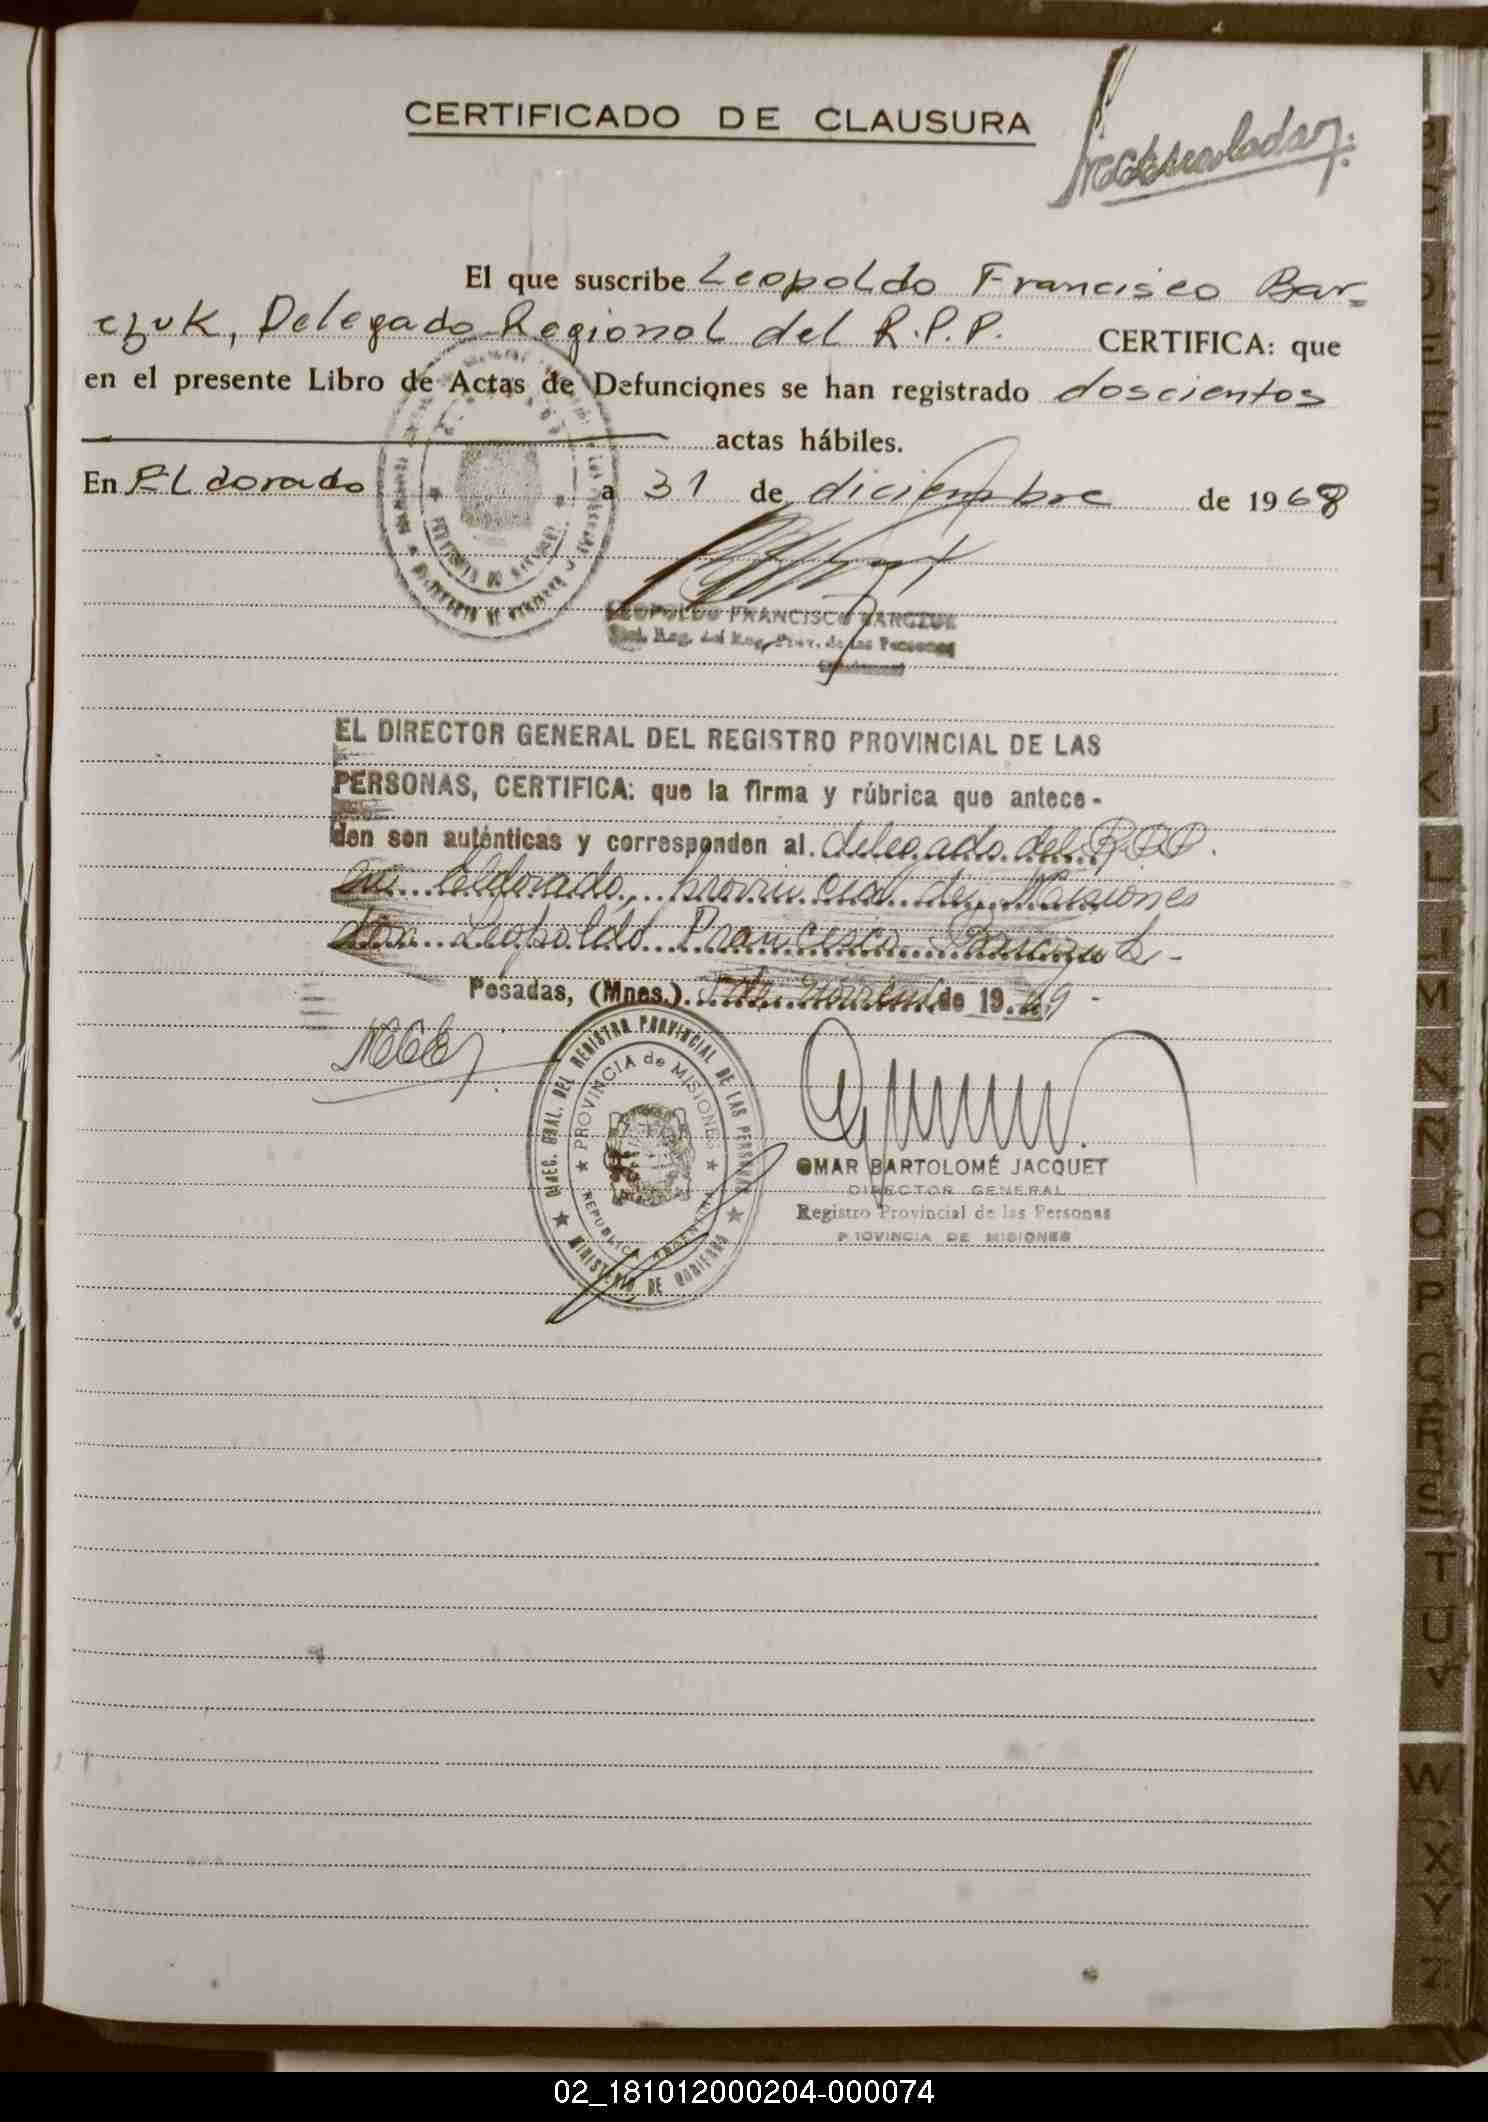 CERTIFICADO DE CLAUSURA
El que suscribe Leopoldo Francisco Bar=
czuk, Delegado Regional del R.P.P. CERTIFICA: que
en el presente Libro de Actas de Defunciones se han registrado doscientos
actas hábiles.
En ELdorado a 31 de diciembre de 1968
LEOPOLDO FRANCISCO BARCZUK
Reg. del Reg. Prov. de las Personas
EL DIRECTOR GENERAL DEL REGISTRO PROVINCIAL DE LAS
PERSONAS, CERTIFICA: que la firma y rúbrica que antece-
den son auténticas y corresponden al delegado del R.P.P.
en Eldorado, provincia de Misiones
don Leopoldo Francisco Barczuk-
Posadas, (Mnes.) de 1969-
DIREC. GRAL. DEL REGISTRO PROVINCIAL DE LAS PERSONAS
PROVINCIA de MISIONES
REPUBLICA ARGENTINA
MINISTERIO DE GOBIERNO
OMAR BARTOLOMÉ JACQUET
DIRECTOR GENERAL
Registro Provincial de las Personas
PROVINCIA DE MISIONES
L
M
N
Ñ
O
P
T
U
V
W
X
Y
Z
02_181012000204-000074